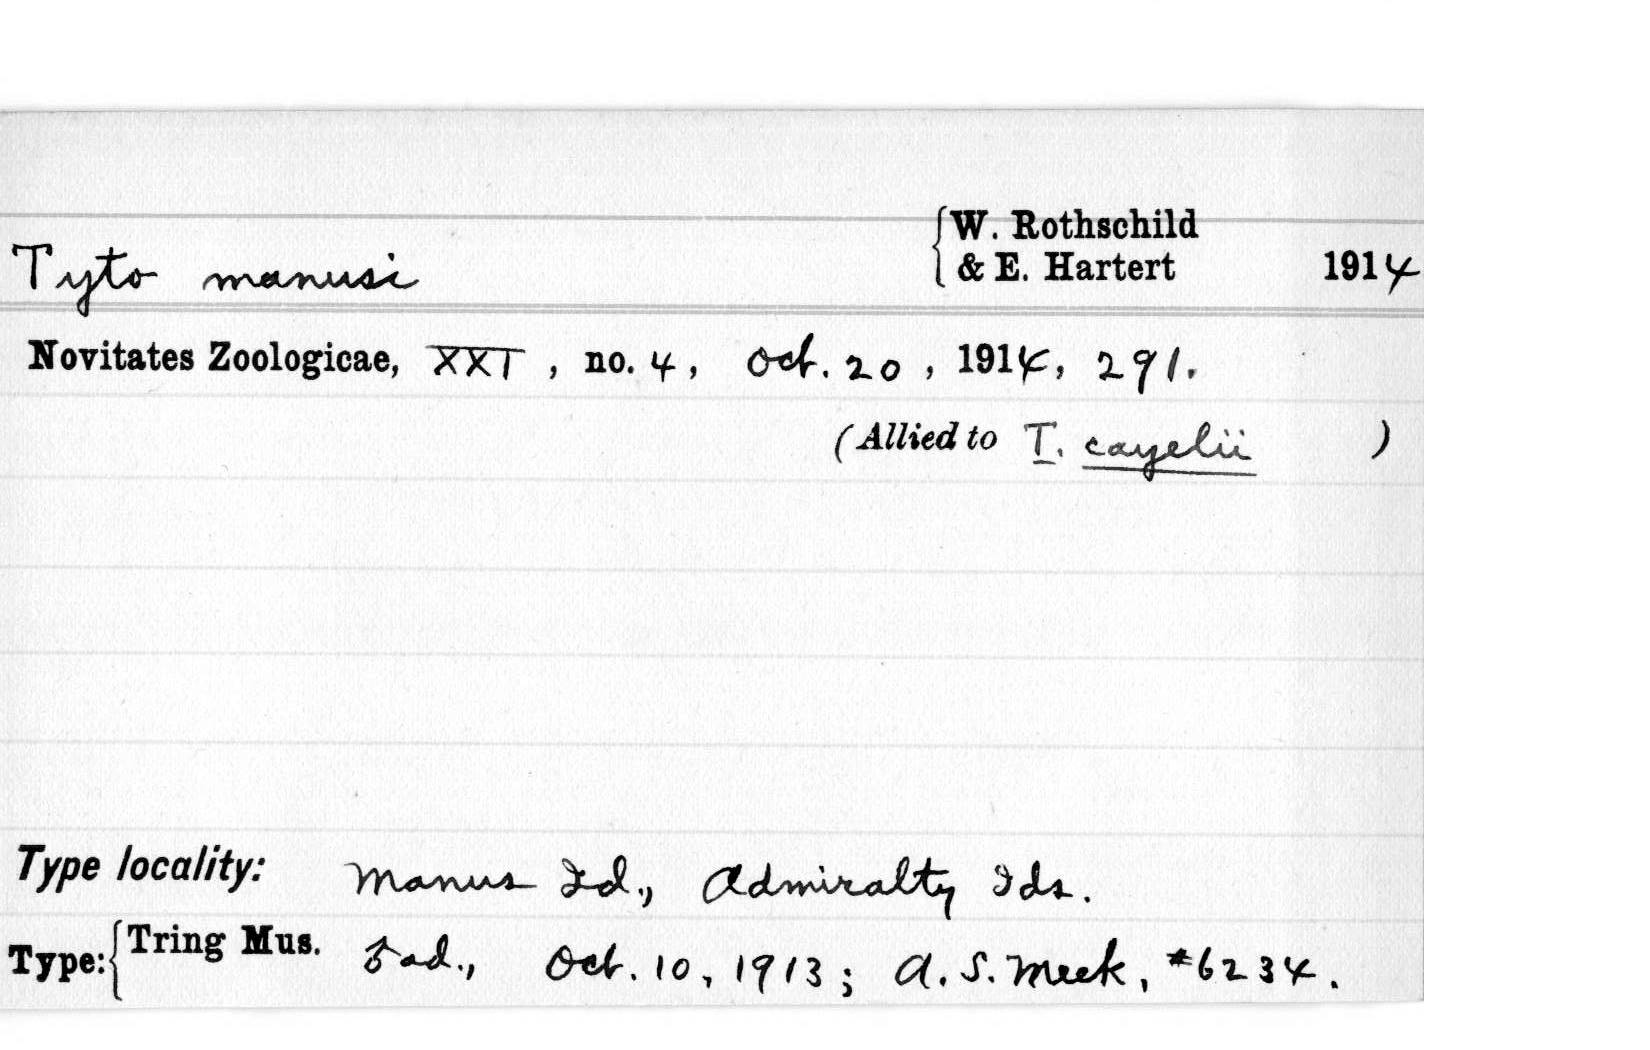 Tyto manusi { W. Rothschild & E. Hartert 1914
Novitates Zoologicae, XXI, no. 4, Oct. 20, 1914, 291.
(Allied to T. cayelii )
Type locality: Manus Id., Admiralty Ids.
Type: { Tring Mus. ♂ ad., Oct. 10, 1913; A. S. Meek, #6234.